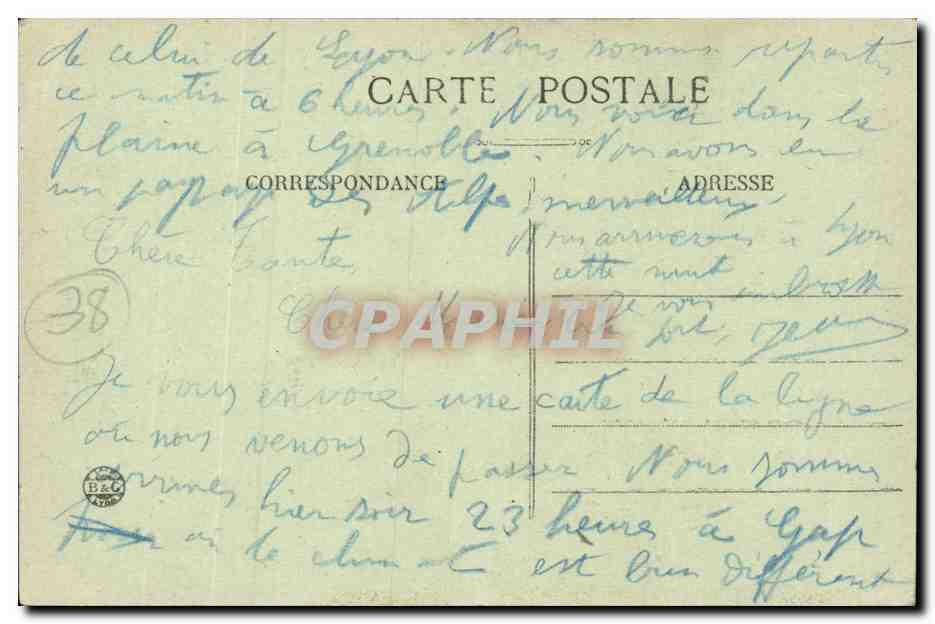 de celui de Lyon. Nous sommes repartis
CARTE POSTALE
ce matin à 6 heures. Nous voici dans la
plaine à Grenoble. Nous avons eu
CORRESPONDANCE
ADRESSE
un paysage des Alpes merveilleux.
Nous arriverons à Lyon
cette nuit
Je vous embrasse
fort,
Chère Tante,
38
CPAPHIL
Je vous envoie une carte de la ligne
où nous venons de passer. Nous sommes
B&G
LYON
arrivés hier soir 23 heure à Gap
où le climat est bien différent